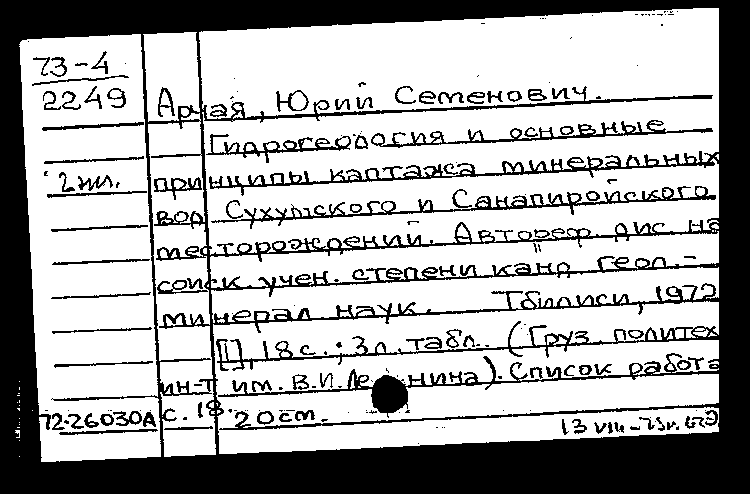 73-4
2249
Арчая, Юрий Семенович.
Гидрогеология и основные
2 экз. принципы каптажа минеральных
вод Сухумского и Санапиройского
месторождений. Автореф. дис. на
соиск. учен. степени канд. геол.-
минерал наук. Тбилиси, 1972
[1], 18 с.; 3 л. табл. (Груз. политех
ин-т им. В.И. Ленина). Список работ а
с. 18.
72-26030А 20 см.
13 VIII-73г.